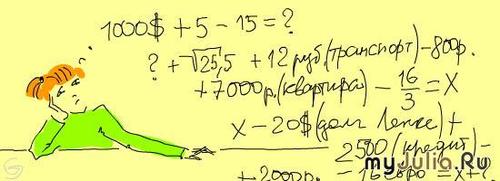 1000$ + 5 - 15 = ?
? + √25,5 + 12 руб.(транспорт) - 800р.
+ 7000 р.(квартира) - 16/3 = X
x - 20$ (долг Ленке) +
2500 (кредит) -
+ 2000р. - 16 евро = x + ?
myJulia.Ru